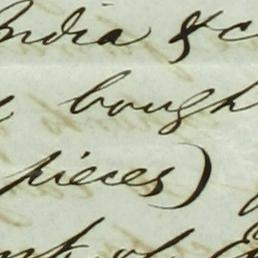 India & c
bough
pieces)
of